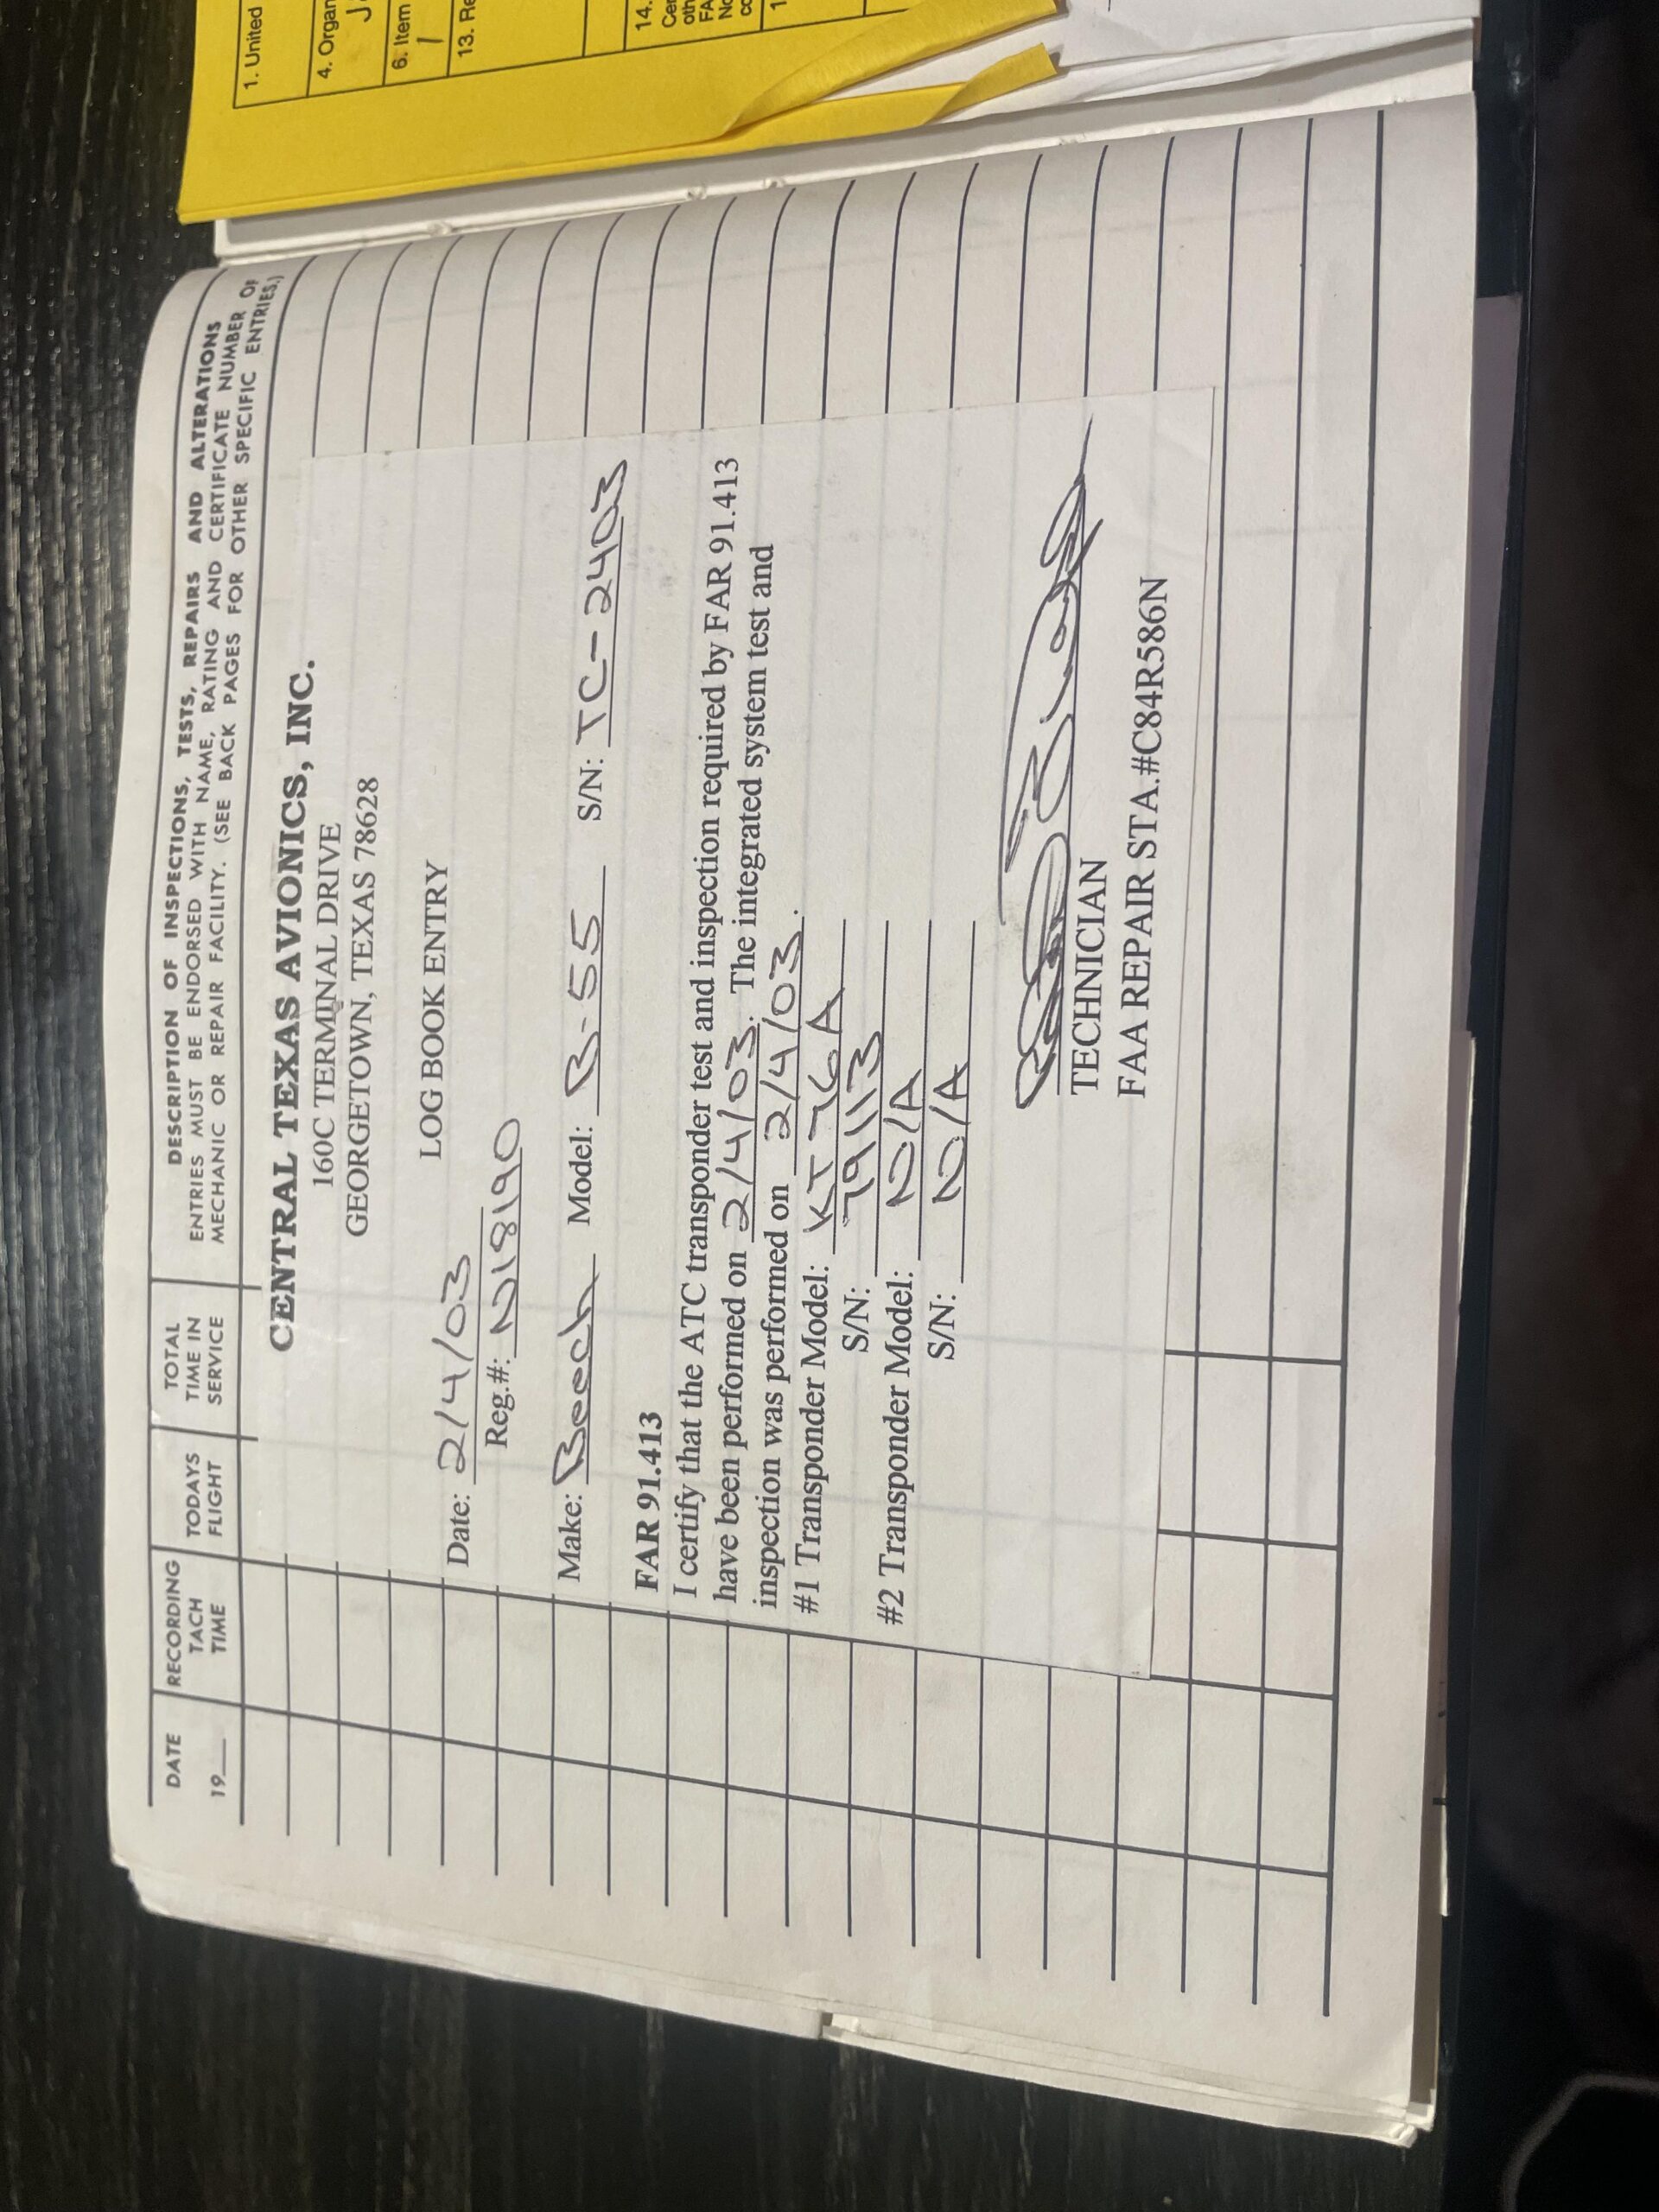 DATE
19__
RECORDING
TACH
TIME
TODAYS
FLIGHT
TOTAL
TIME IN
SERVICE
DESCRIPTION OF INSPECTIONS, TESTS, REPAIRS AND ALTERATIONS
ENTRIES MUST BE ENDORSED WITH NAME, RATING AND CERTIFICATE NUMBER OF
MECHANIC OR REPAIR FACILITY. (SEE BACK PAGES FOR OTHER SPECIFIC ENTRIES.)
CENTRAL TEXAS AVIONICS, INC.
160C TERMINAL DRIVE
GEORGETOWN, TEXAS 78628
LOG BOOK ENTRY
Date: 2/4/03
Reg.#: N18190
Make: Beech Model: B-55 S/N: TC-2403
FAR 91.413
I certify that the ATC transponder test and inspection required by FAR 91.413
have been performed on 2/4/03. The integrated system test and
inspection was performed on 2/4/03.
#1 Transponder Model: KT76A
S/N: 79113
#2 Transponder Model: N/A
S/N: N/A
TECHNICIAN
FAA REPAIR STA.#C84R586N
1. United
4. Organ
6. Item
1
13. Re
14.